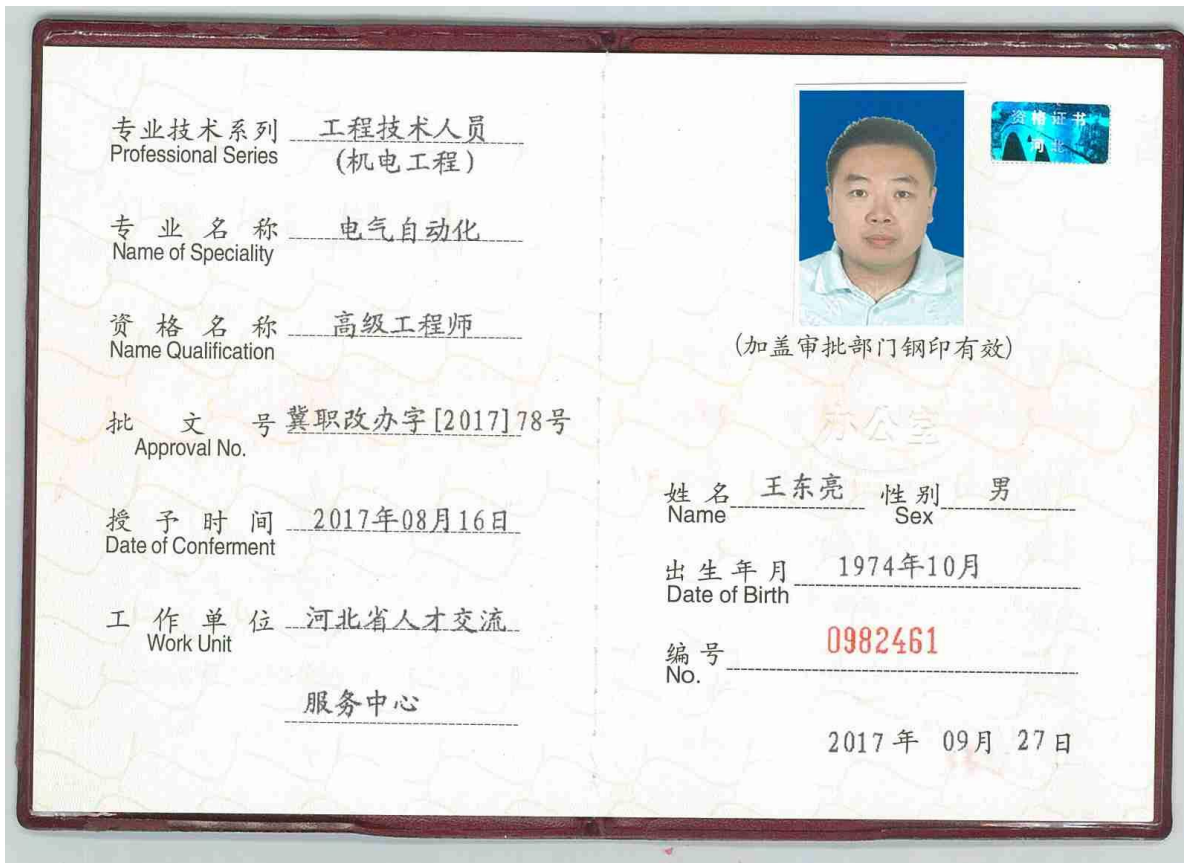 专业技术系列 工程技术人员
Professional Series (机电工程)
专业名称 电气自动化
Name of Speciality
资格名称 高级工程师
Name Qualification
批文号 冀职改办字[2017]78号
Approval No.
授予时间 2017年08月16日
Date of Conferment
工作单位 河北省人才交流
Work Unit
服务中心
资格证书
河北
(加盖审批部门钢印有效)
办公室
姓名 王东亮 性别 男
Name Sex
出生年月 1974年10月
Date of Birth
编号 0982461
No.
2017年 09月 27日